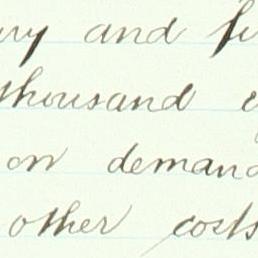 and
thousand
on demand
other costs